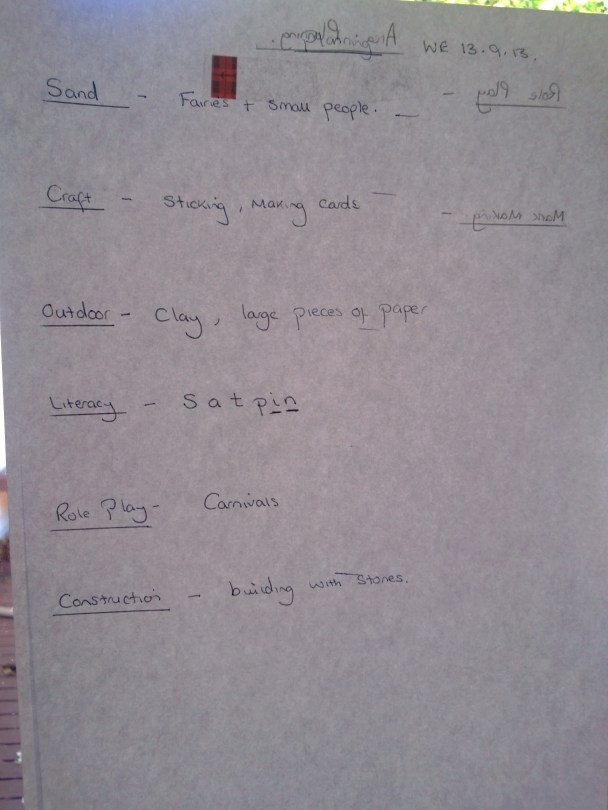 WE 13.9.13.
Sand - Fairies + small people.
Role Play -
Craft - Sticking, Making cards
Mark Making -
Outdoor - Clay, large pieces of paper
Literacy - S a t p i n
Role Play - Carnivals
Construction - building with stones.